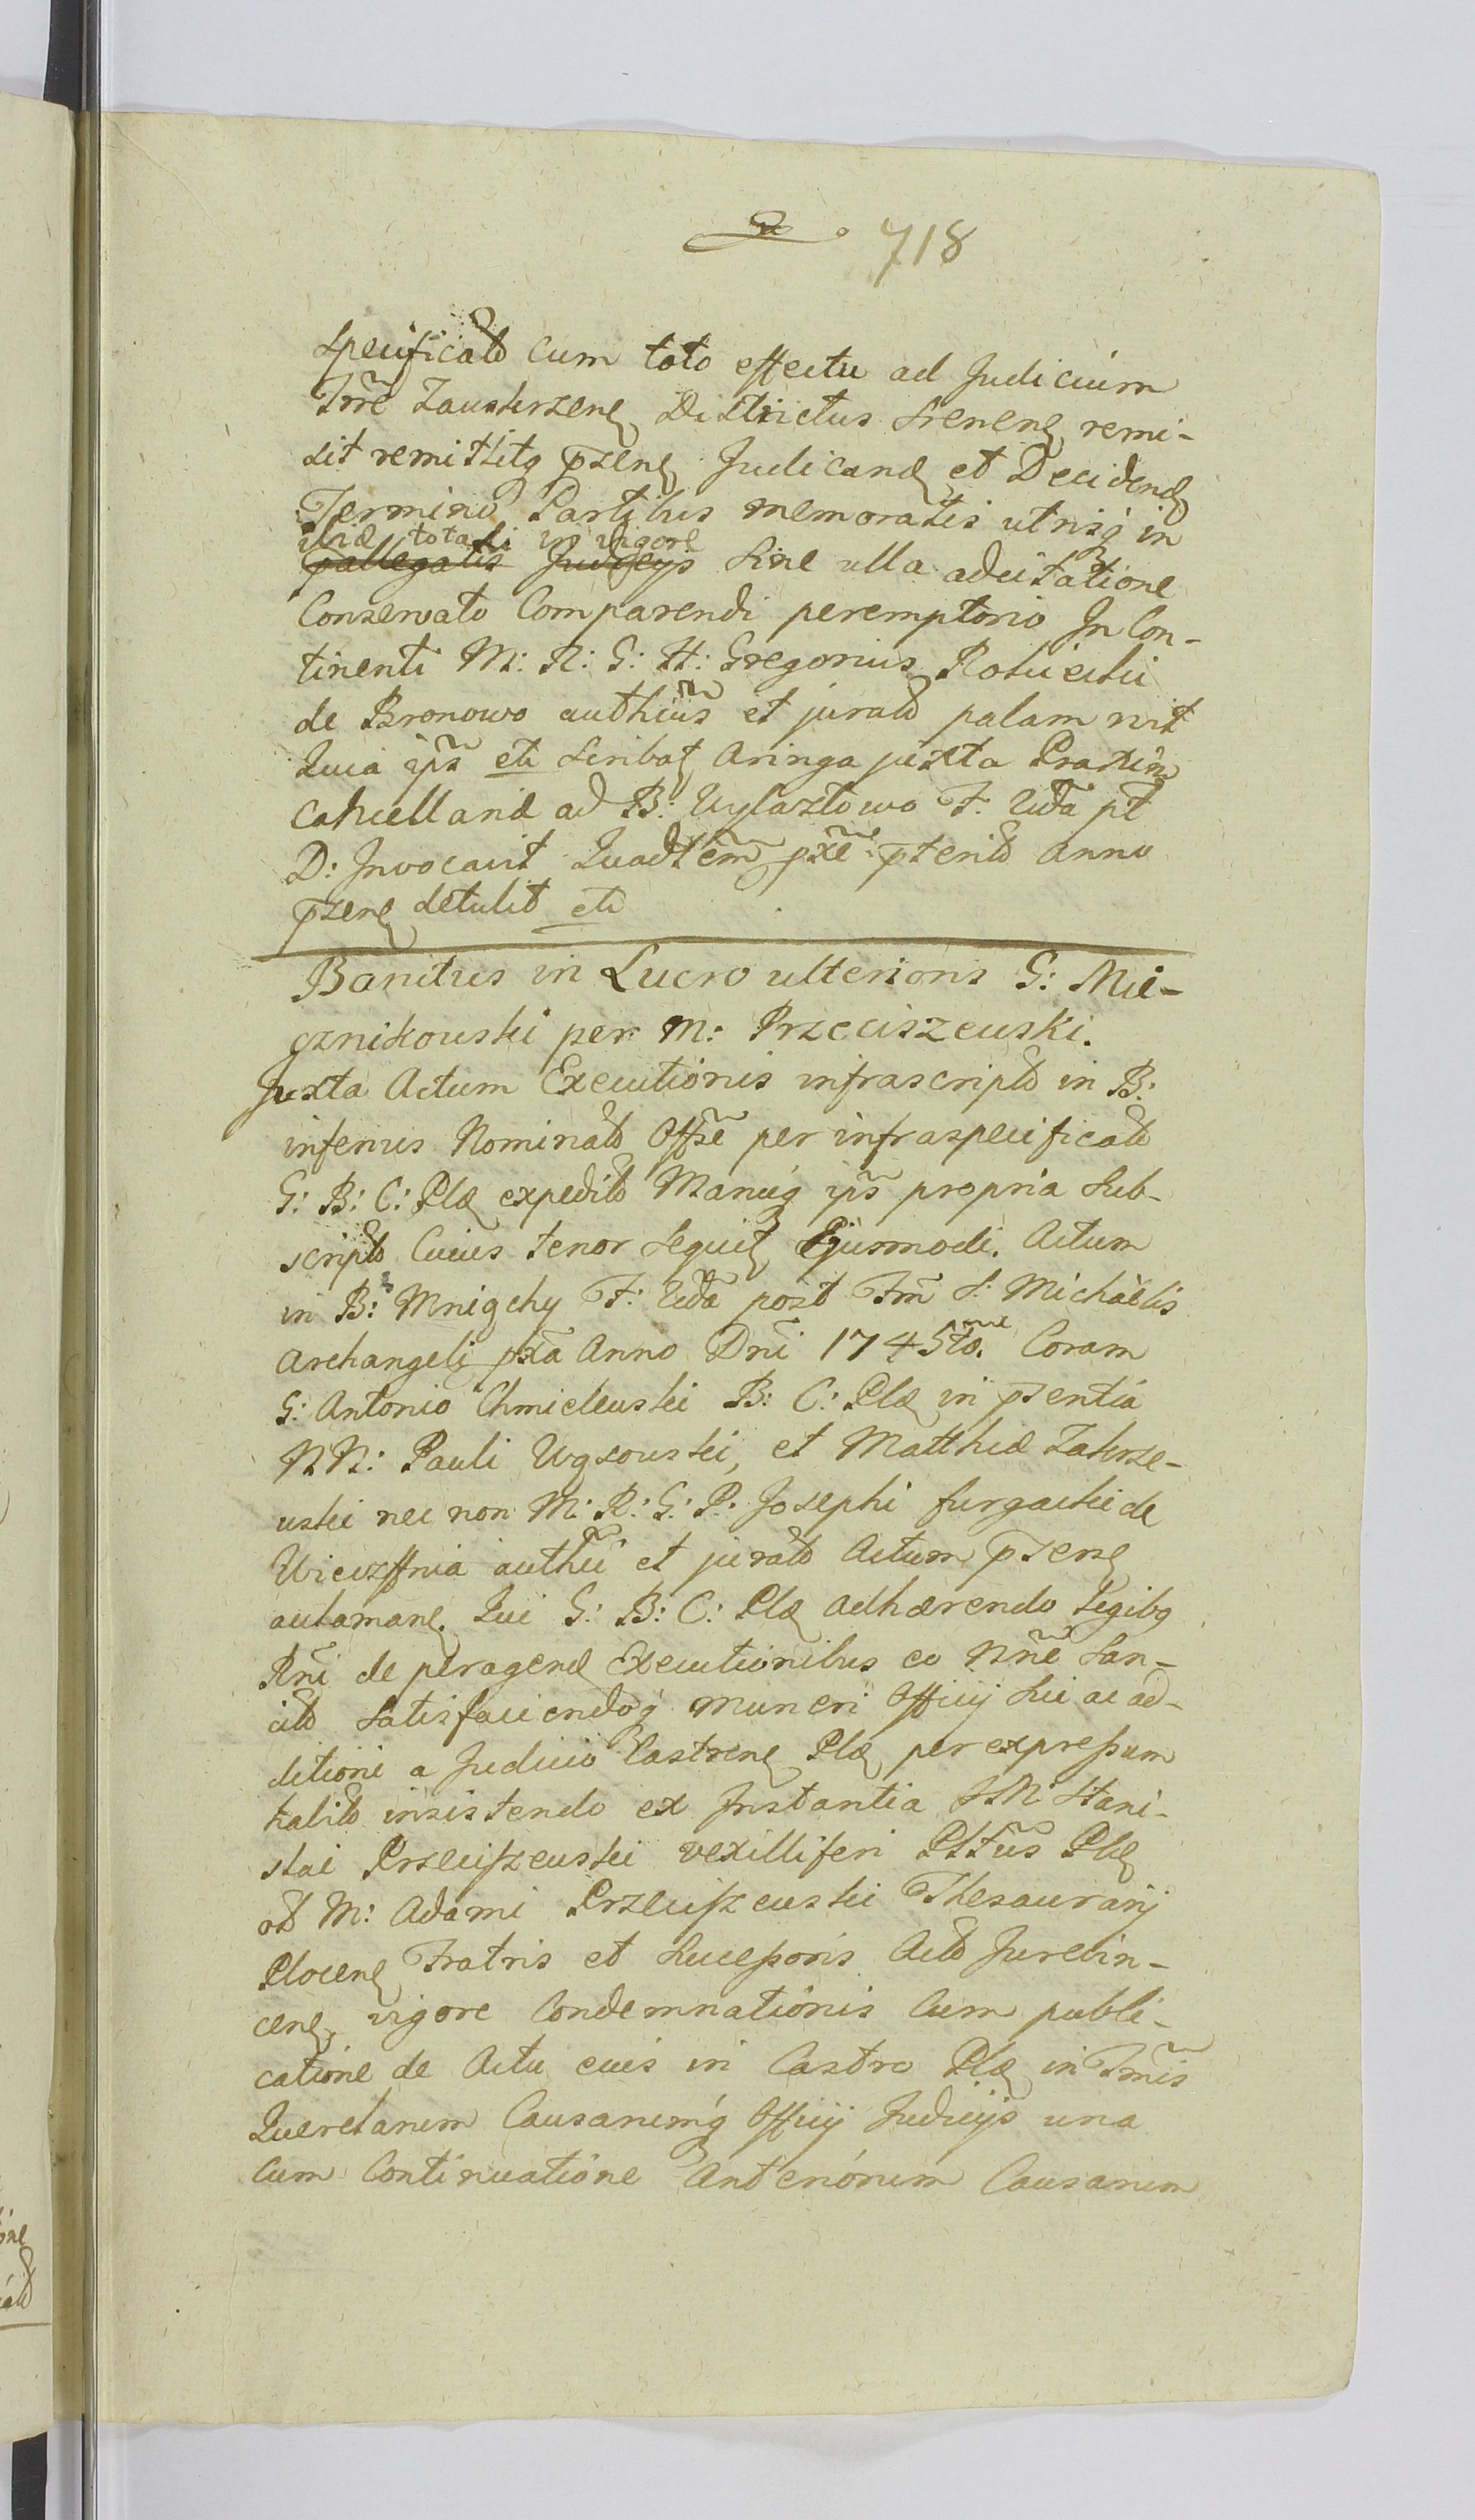 718
specificato cum toto effectu ad Judicium
Trre Zauskrzen Districtus Srenen remi-
sit remittitq pzen Judicand et Decidend
Termino Partibus memoratis utrisq in
illiæ totali in vigore
pallegatis Judicijs sine ulla adcitatione
Conservato Comparendi peremptorio In Con-
tinenti M: R: G: H: Gregorius
de Bronowo authus et jurato palam rnt
Quia ips etc Scribat Aringa juxta Praxim
Cancellariæ ad B: Uylaztowo F. 2da pt
D: Invocavit Quadtem pxe pterito Anno
pzen detulit etc
Banitus in Lucro ulterioris G: Mie-
cznikouski per M: Przeciszeuski.
Juxta Actum Executionis infrascripto in B:
inferius Nominato Offse per infraspecificato
G: B: C: Plæ expedito Manuq ips propria Sub-
scripto Cuius tenor Sequit Ejusmodi. Actum
in B: Mnigchy F: 2da post Fm S: Michaelis
Archangeli pxa Anno Dni 1745to. Coram
G: Antonio Chmieleuski B: C: Plæ in pzentia
NN: Pauli Ugsouski, et Matthiæ Zakrze-
uski nec non M: R: G: P: Josephi furgacki de
Wieczffnia authu et jurato Actum pzens
autaman. Qui G: B: C: Plæ adhærendo Legibq
Rni de peragend Executionibus eo Nne San-
cito Satisfaciendoq muneri Officij Sui ac ad-
ditioni a Judicio Castren Plæ per expressum
habito insistendo ex Instantia M Stani-
slai Przeciszeuski vexilliferi Pltus Plæ
ob M: Adami Przeciszeuski Thesaurarij
Plocen Fratris et Successoris Acto Jurevin-
cen, vigore Condemnationis Cum publi-
catione de Actu cuis in Castro Plæ in Tmis
Querelarum Causarumq Officij Judicijs una
Cum Continuatione Anteriorum Causarum